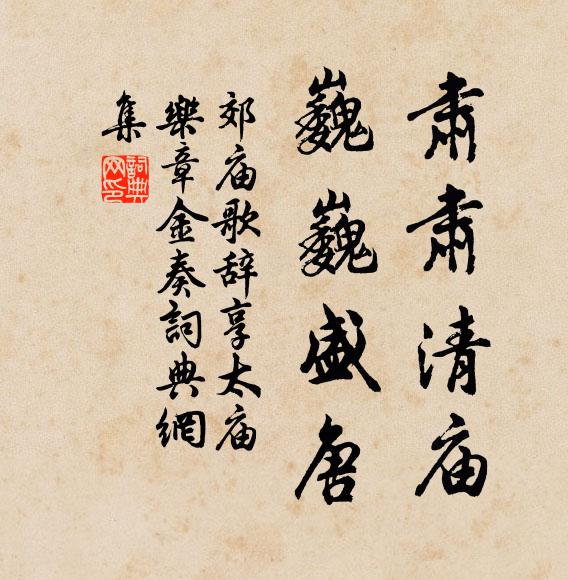 肅肅清庙
巍巍盛唐
郊庙歌辞享太庙
樂章金奏詞典網
集
詞典网印